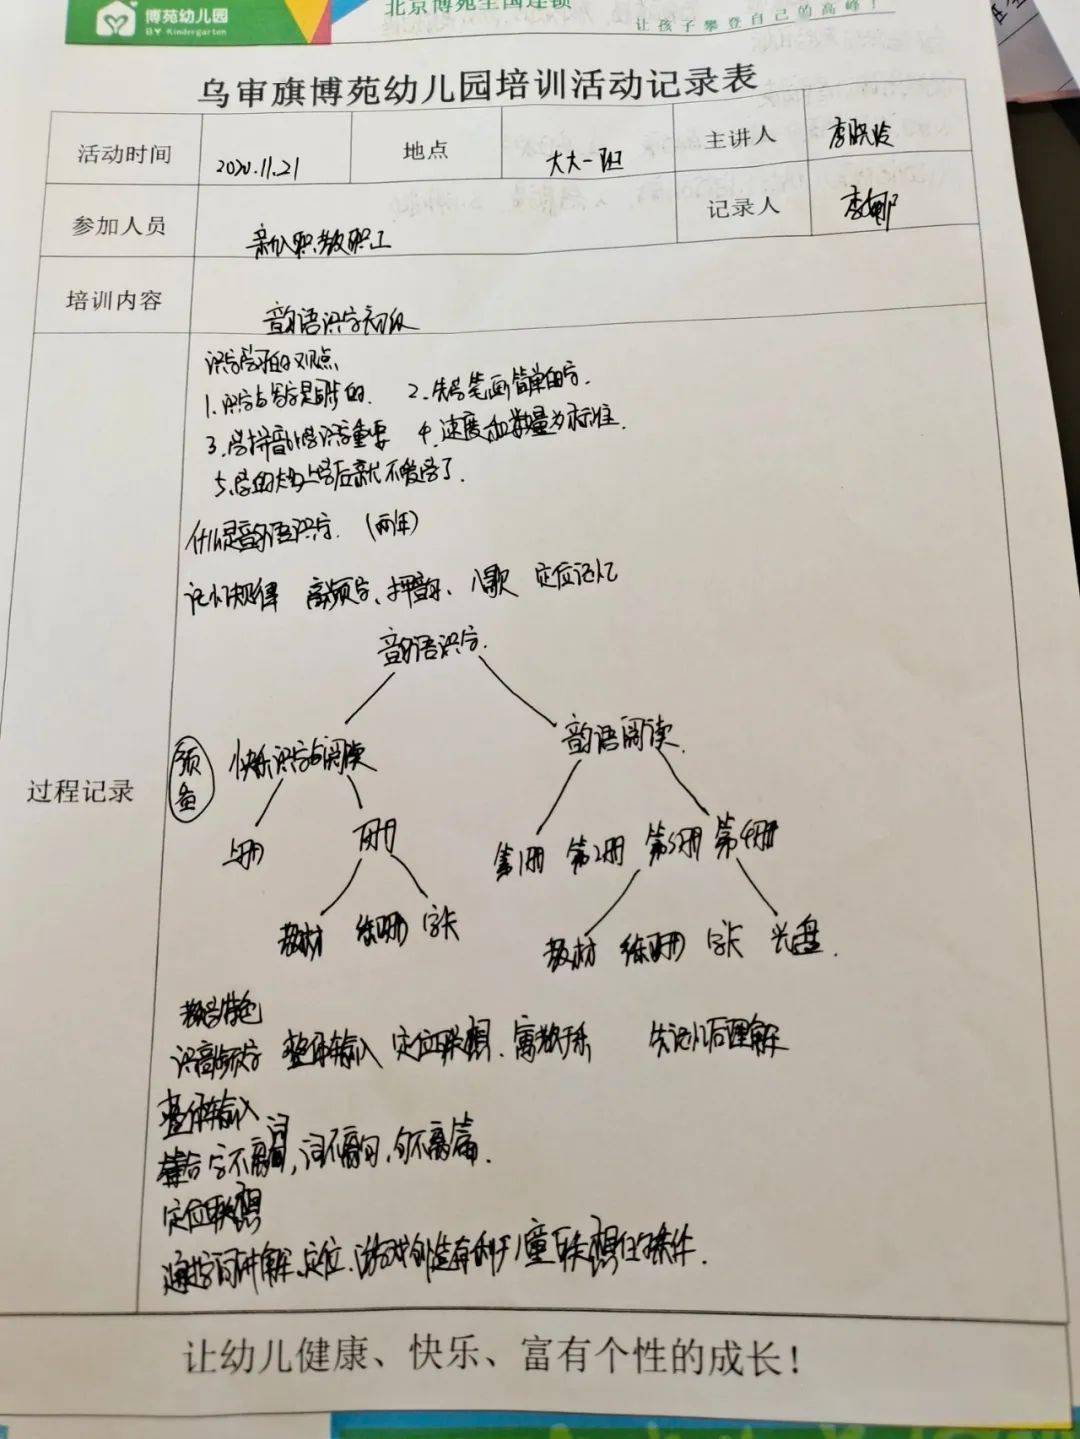 博苑幼儿园
BY Kindergarten
北京博苑全国连锁
让孩子攀登自己的高峰!
乌审旗博苑幼儿园培训活动记录表
活动时间 2020.11.21 地点 大大一班 主讲人 李晓玲
参加人员 新入职教职工 记录人 李娜
培训内容 韵语识字初级
过程记录
识字学习的观点
1.识字与写字是同步的. 2.先写笔画简单的字.
3.学拼音比学识字重要 4.速度和数量为标准.
5.学的太多上学后就不爱学了.
什么是韵语识字. (两年)
记忆规律 高频字、押韵、儿歌 定位记忆
韵语识字.
预备 快乐识字与阅读 韵语阅读.
上册 下册 第1册 第2册 第3册 第4册
教材 练习册 字卡 教材 练习册 字卡 光盘.
教学特色
识高频字 整体输入 定位联想. 寓教于乐 先记忆后理解
整体输入
整合 字不离词, 词不离句, 句不离篇.
定位联想
通过字词讲解、定位、游戏创造有利于儿童联想任务条件.
让幼儿健康、快乐、富有个性的成长!